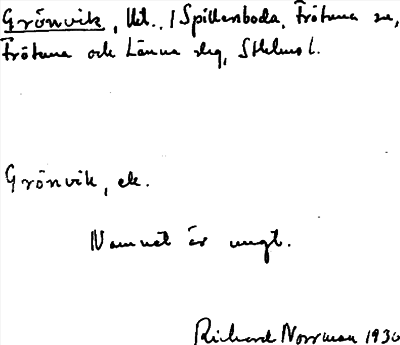 Grönvik, lht. / Spillersboda, Frötuna sn,
Frötuna och Länna slg, Sthlms l.
Grönvik, ek.
Namnet är ungt.
Richard Norrman 1930